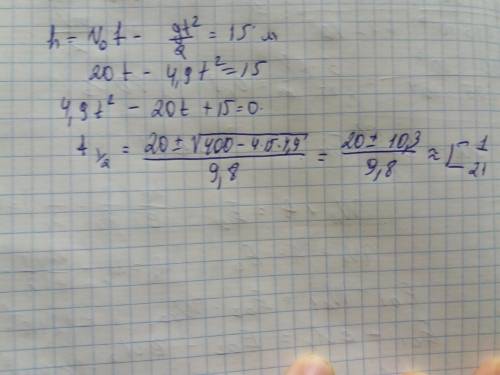 h = V₀t - gt²/2 = 15 м
20t - 4,9t² = 15
4,9t² - 20t + 15 = 0.
t₁/₂ = (20 ± √(400 - 4·15·4,9))/9,8 = (20 ± 10,3)/9,8 ≈ [ 1